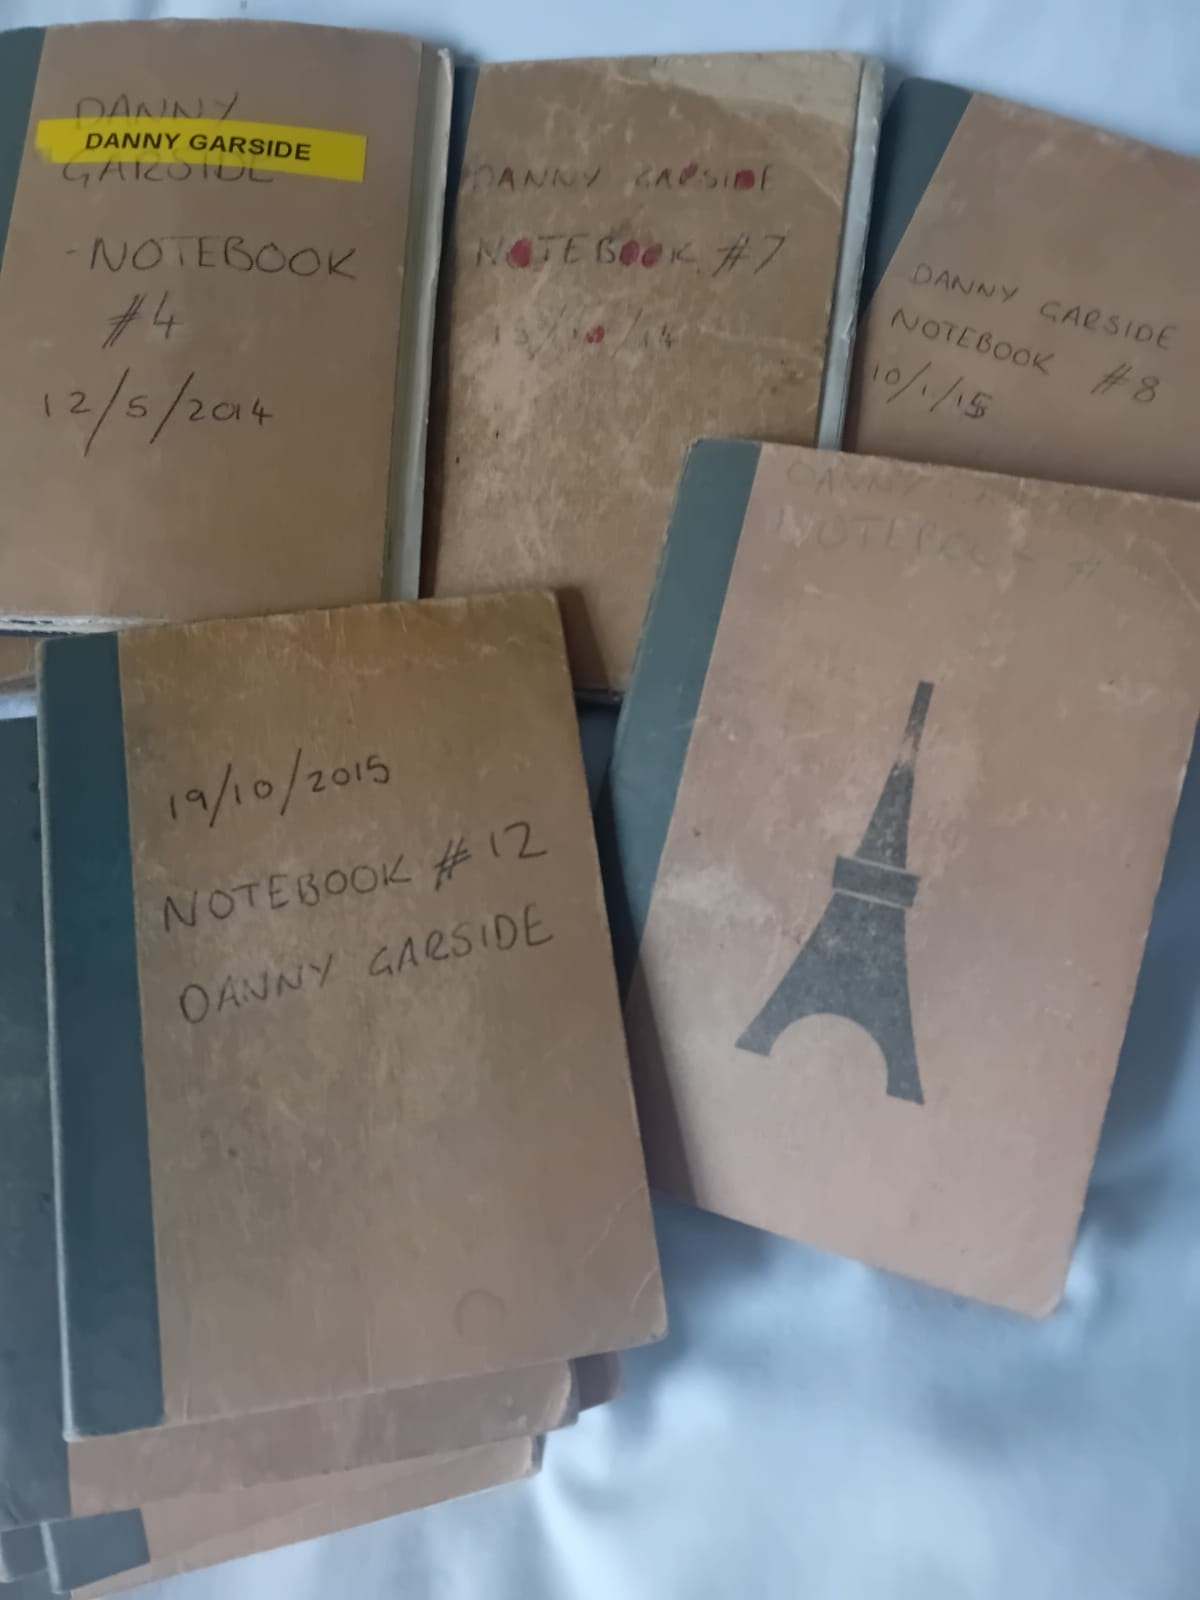 DANNY
DANNY GARSIDE
GARSIDE
-NOTEBOOK
#4
12/5/2014
DANNY GARSIDE
NOTEBOOK #7
13/10/14
DANNY GARSIDE
NOTEBOOK #8
10/1/15
DANNY
NOTEBOOK #
19/10/2015
NOTEBOOK #12
DANNY GARSIDE